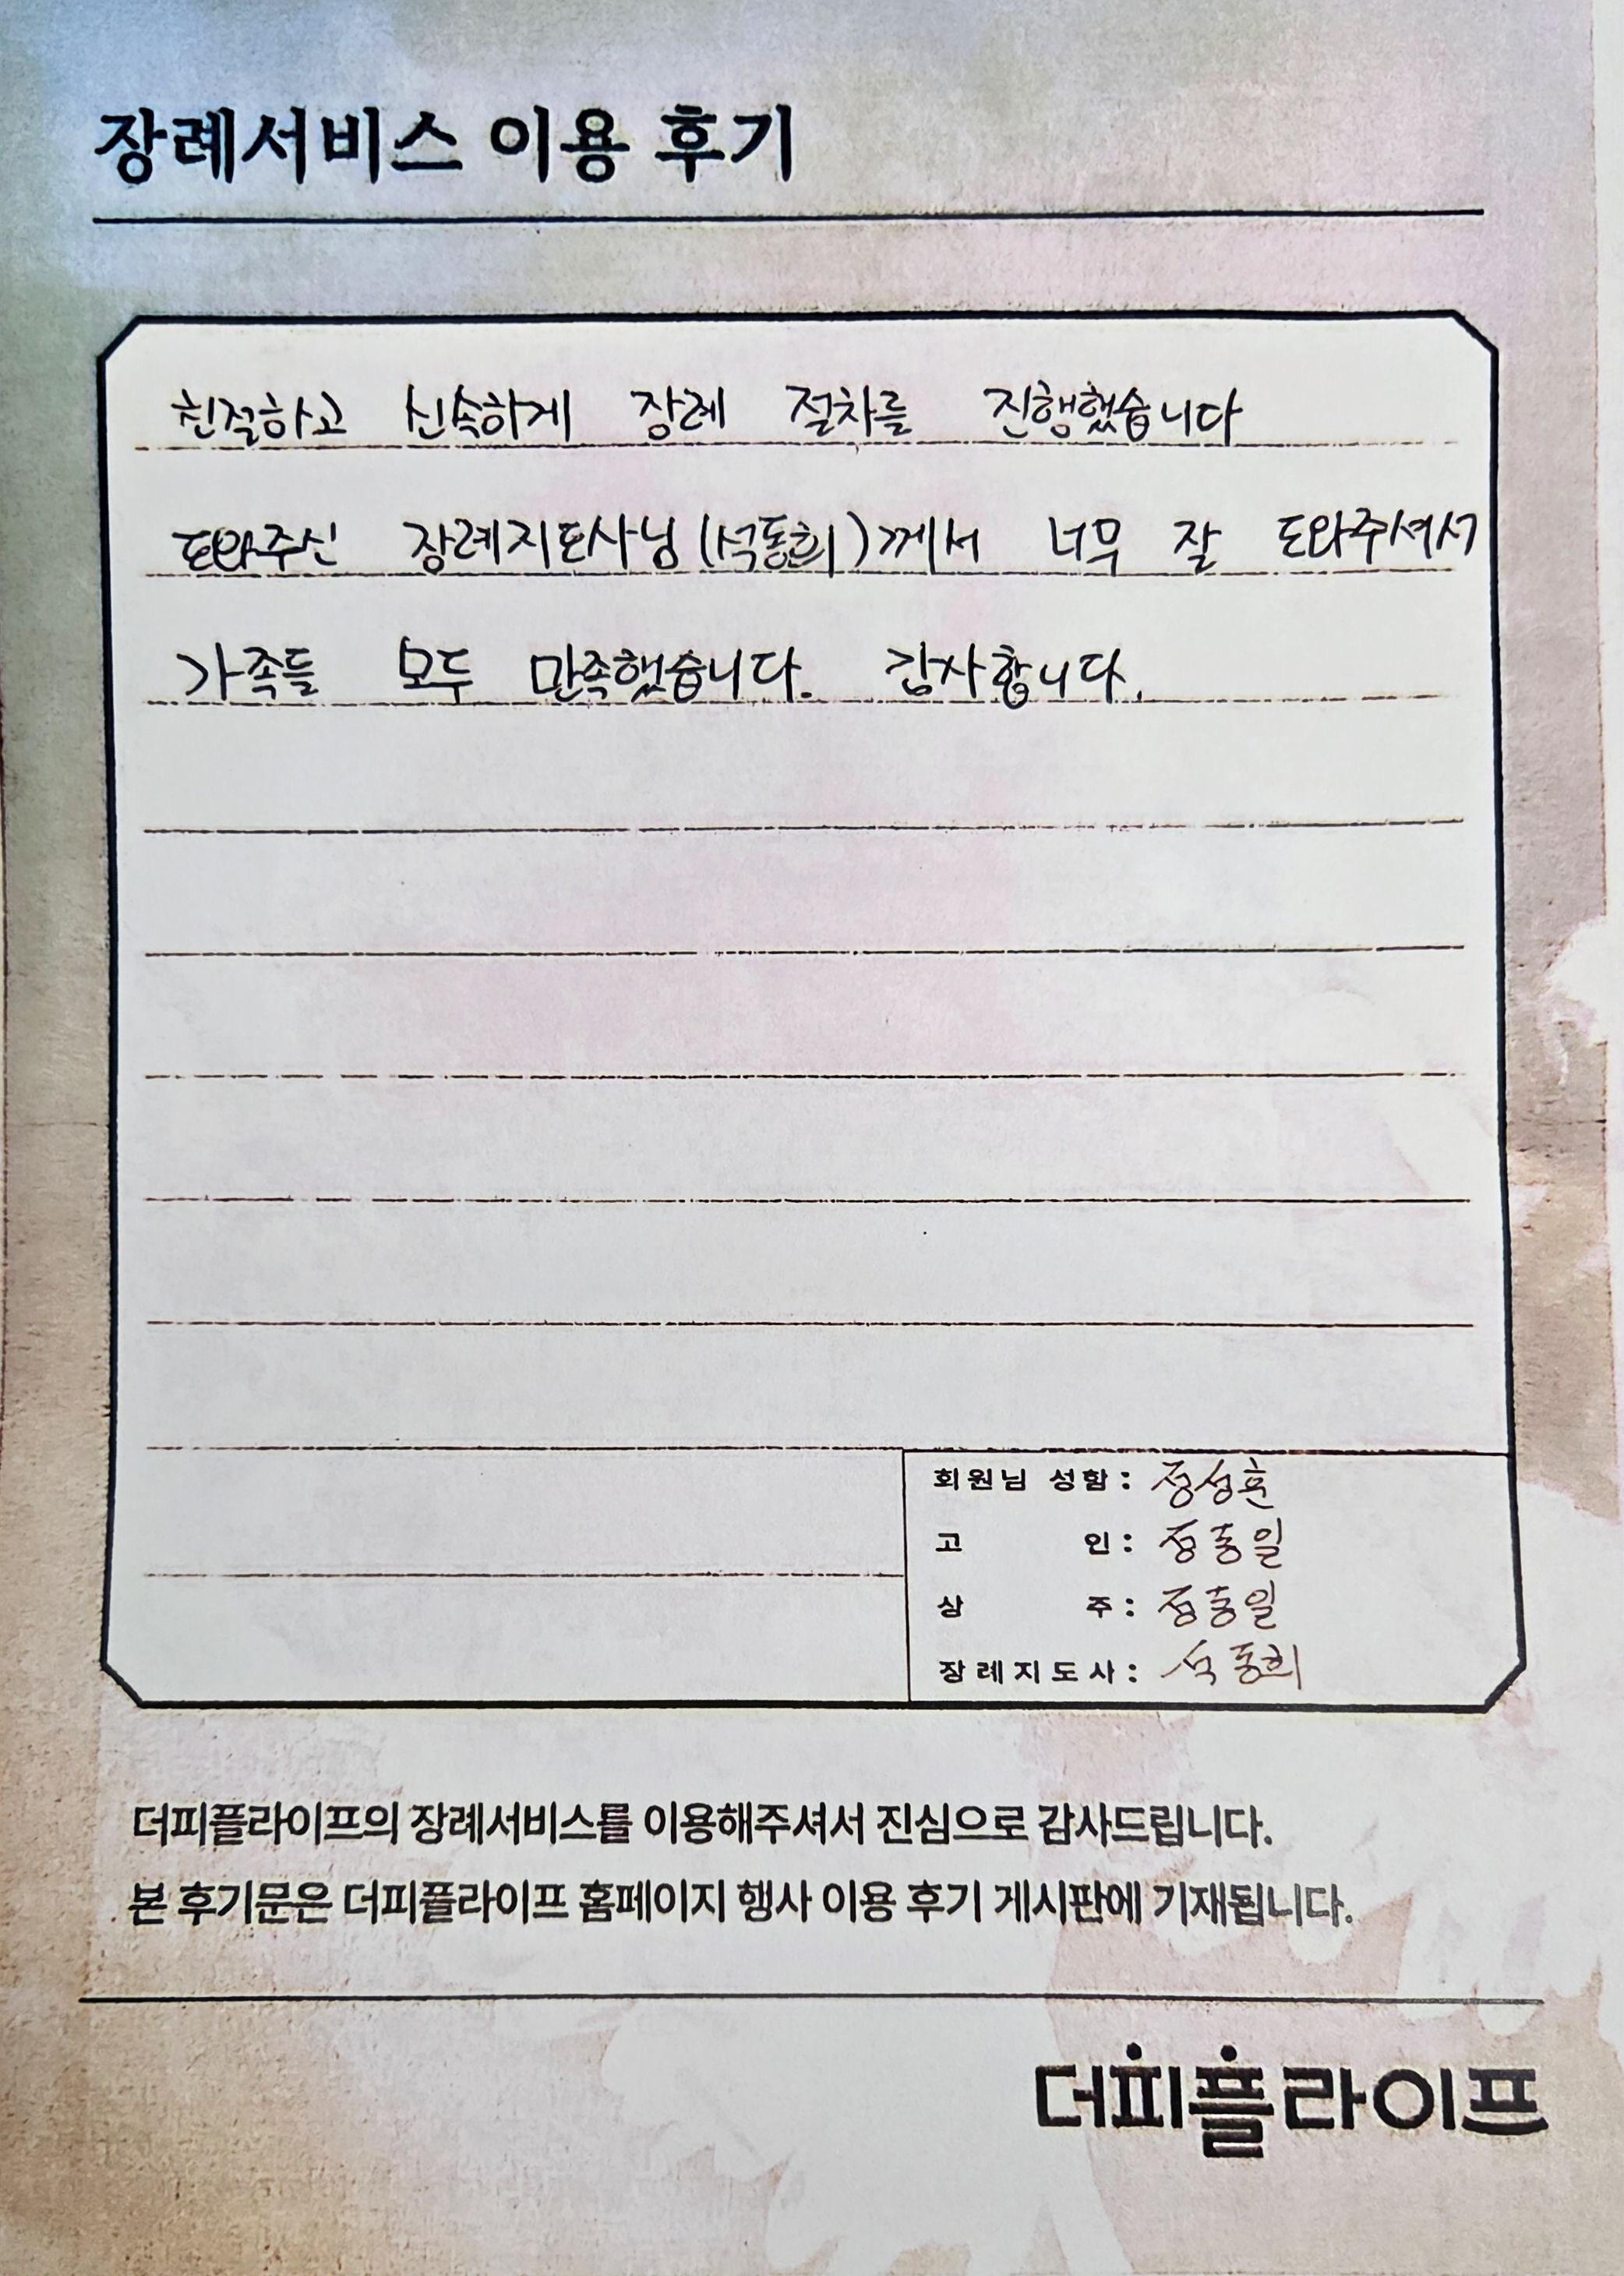 장례서비스 이용 후기
친절하고 신속하게 장례 절차를 진행했습니다
도와주신 장례지도사님(석동희)께서 너무 잘 도와주셔서
가족들 모두 만족했습니다. 감사합니다.
회원님 성함: 정성훈
고 인:
상 주:
장례지도사: 석동희
더피플라이프의 장례서비스를 이용해주셔서 진심으로 감사드립니다.
본 후기문은 더피플라이프 홈페이지 행사 이용 후기 게시판에 기재됩니다.
더피플라이프